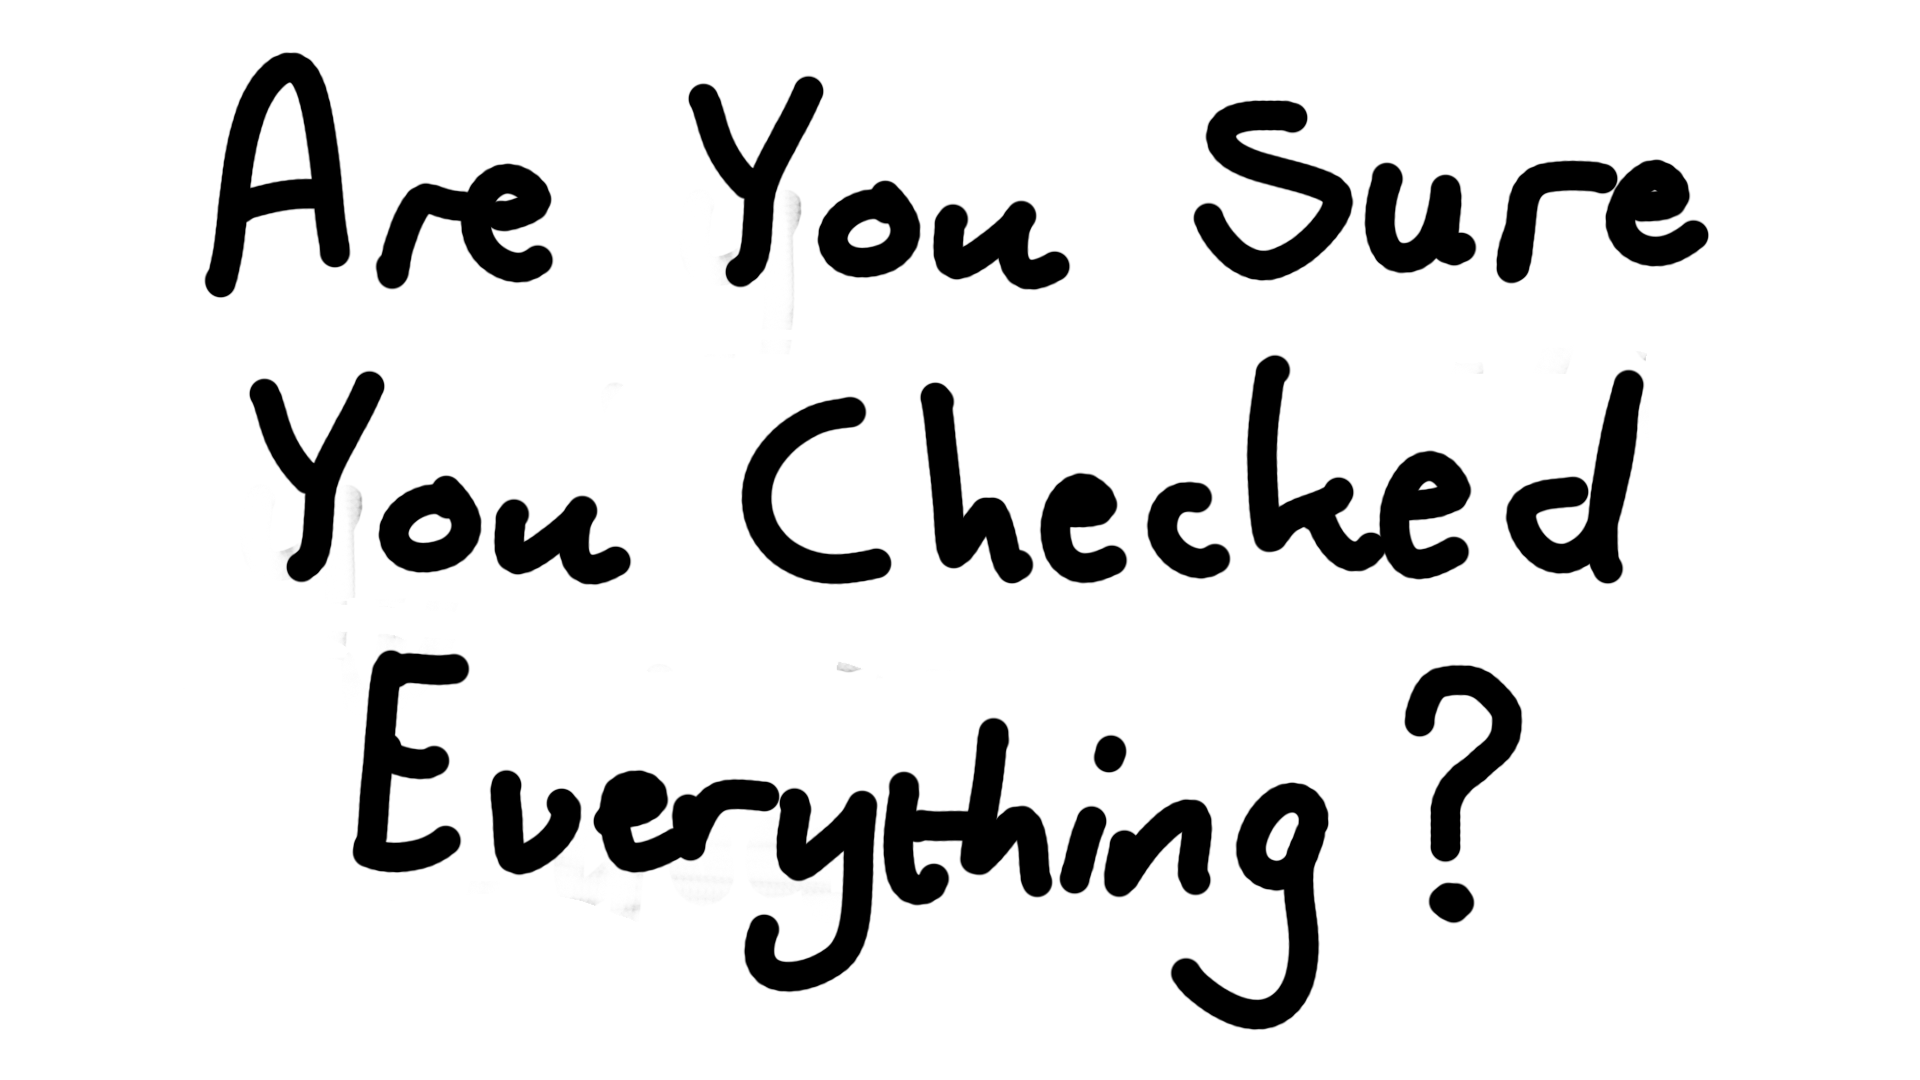 Are You Sure
You Checked
Everything?